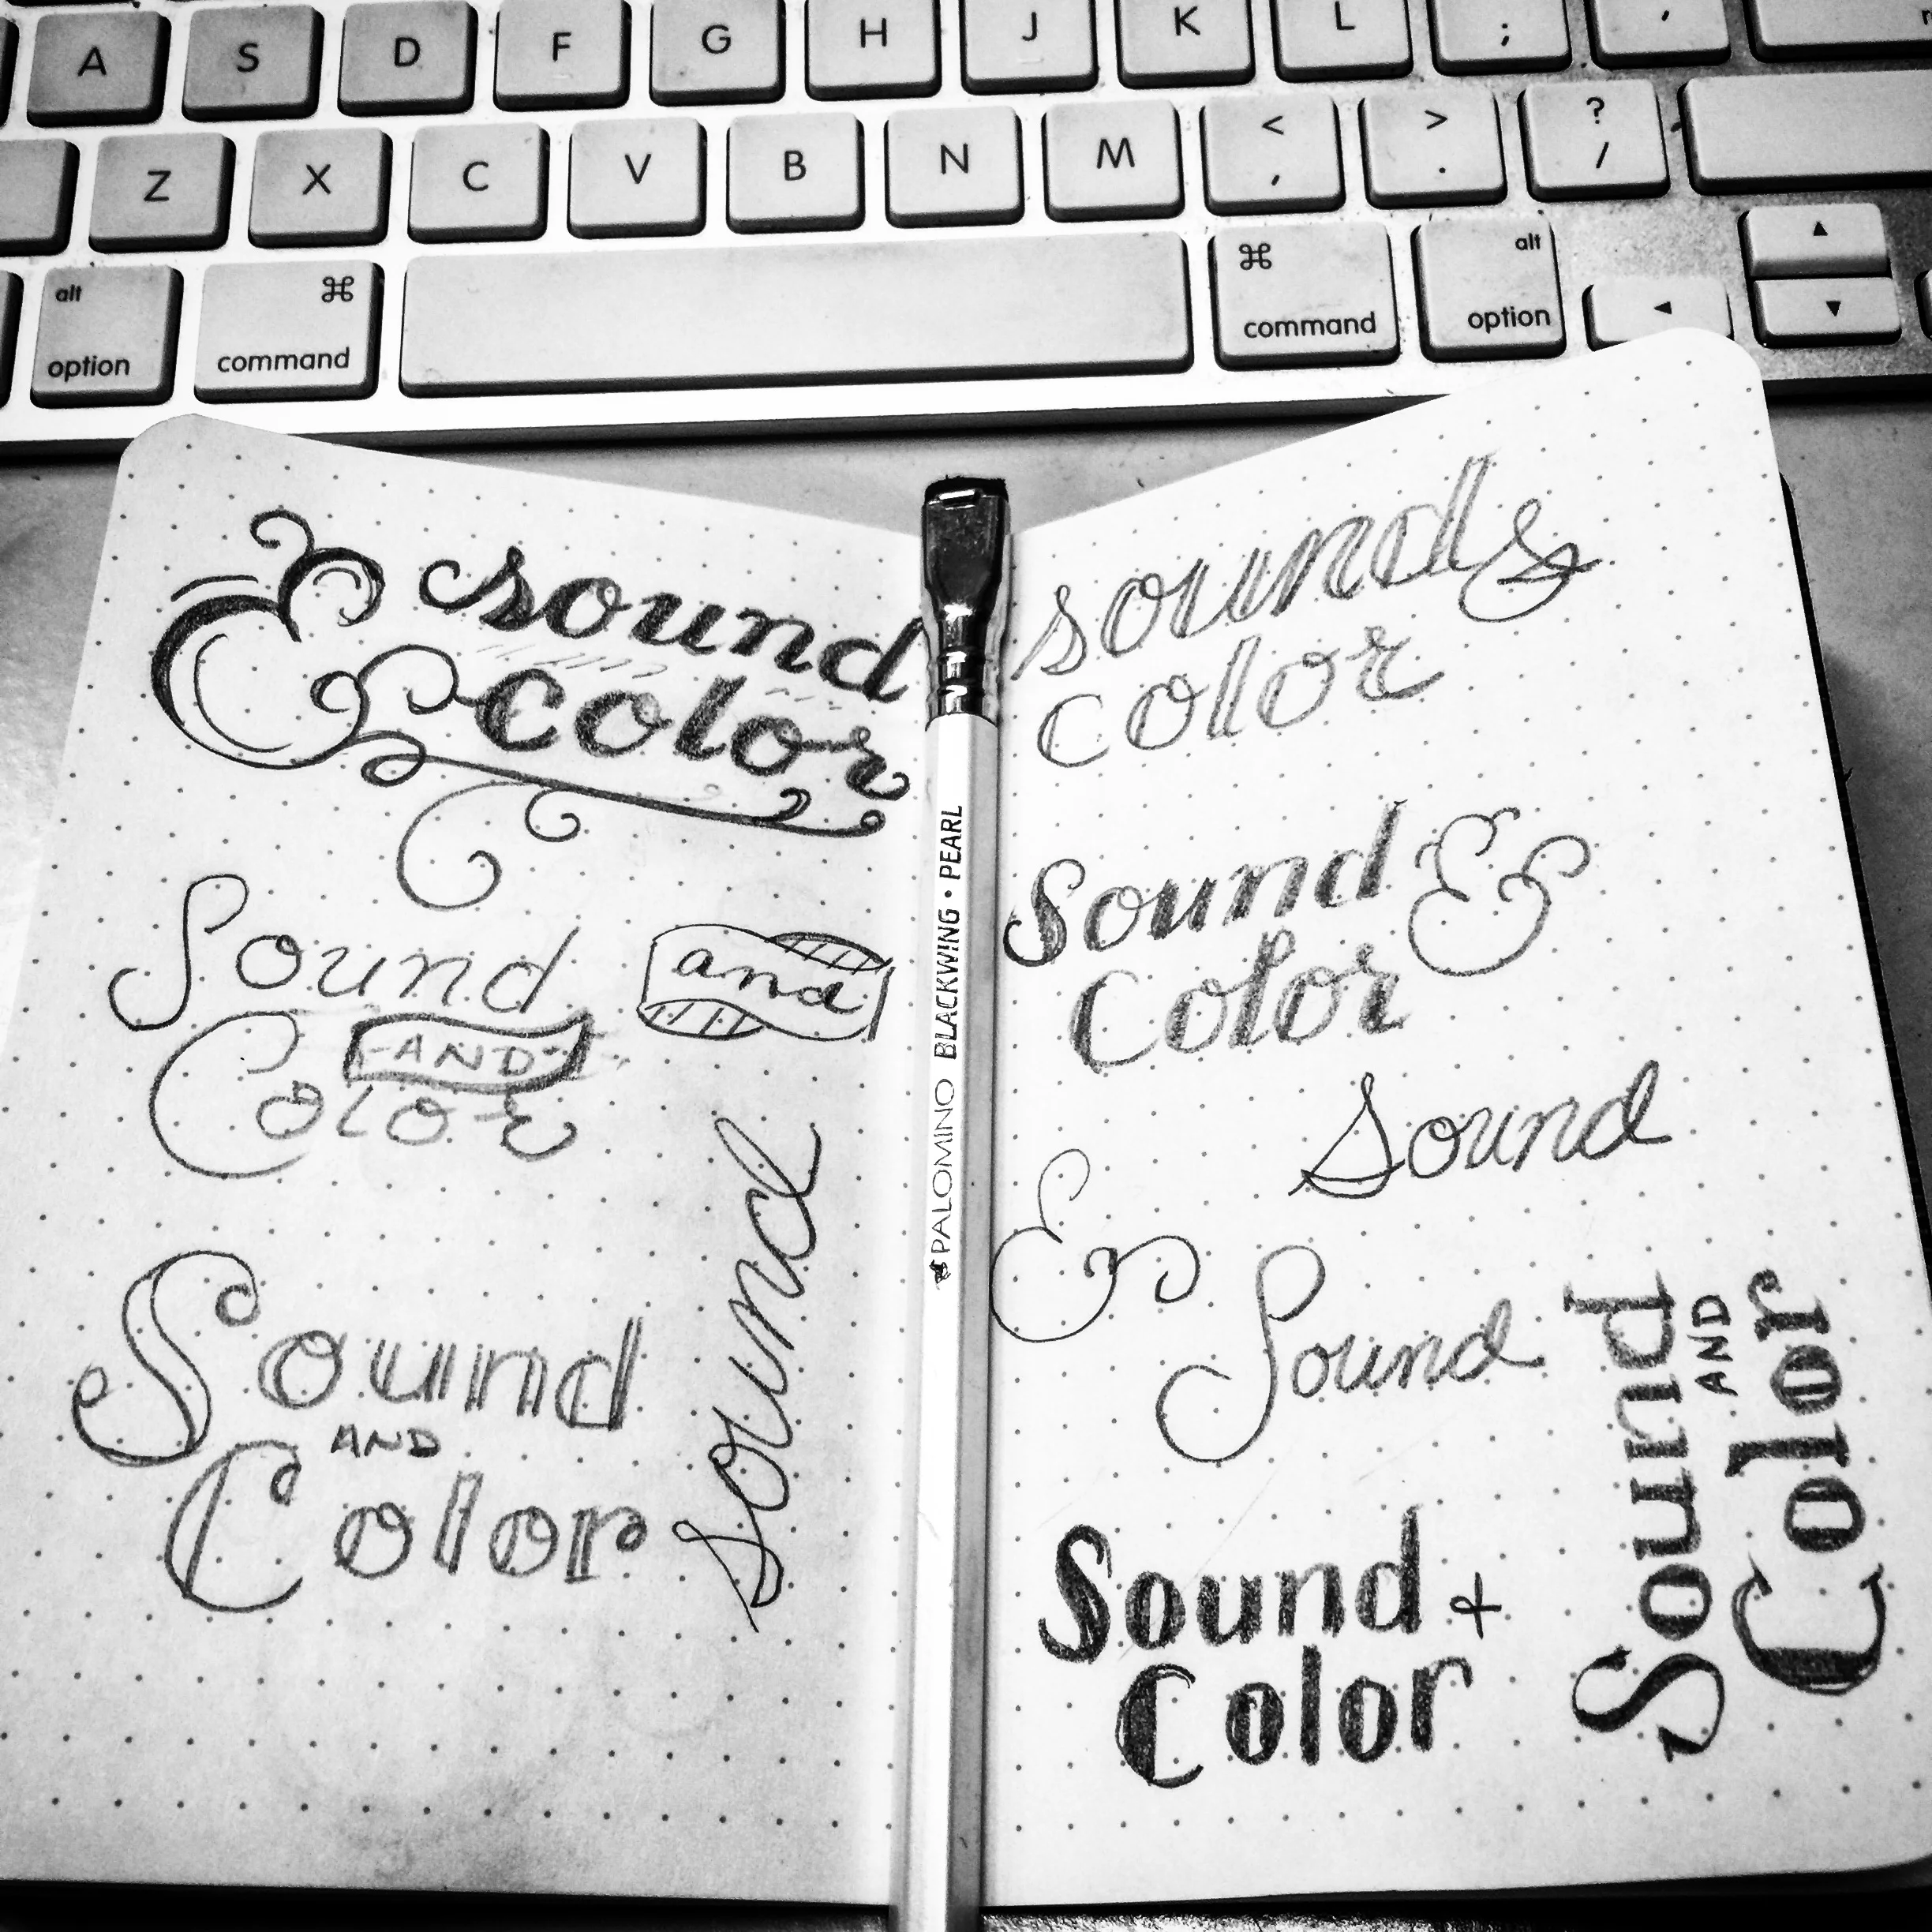 A S D F G H J K L ; '
Z X C V B N M < , > . ? /
alt option
⌘ command
⌘ command
alt option
▲
◄ ▼
& sound
color
Sound
AND
Color
and
sound
Sound
AND
Color
PALOMINO BLACKWING • PEARL
sound &
color
Sound &
Color
Sound
&
Sound
Sound +
Color
Sound
AND
Color